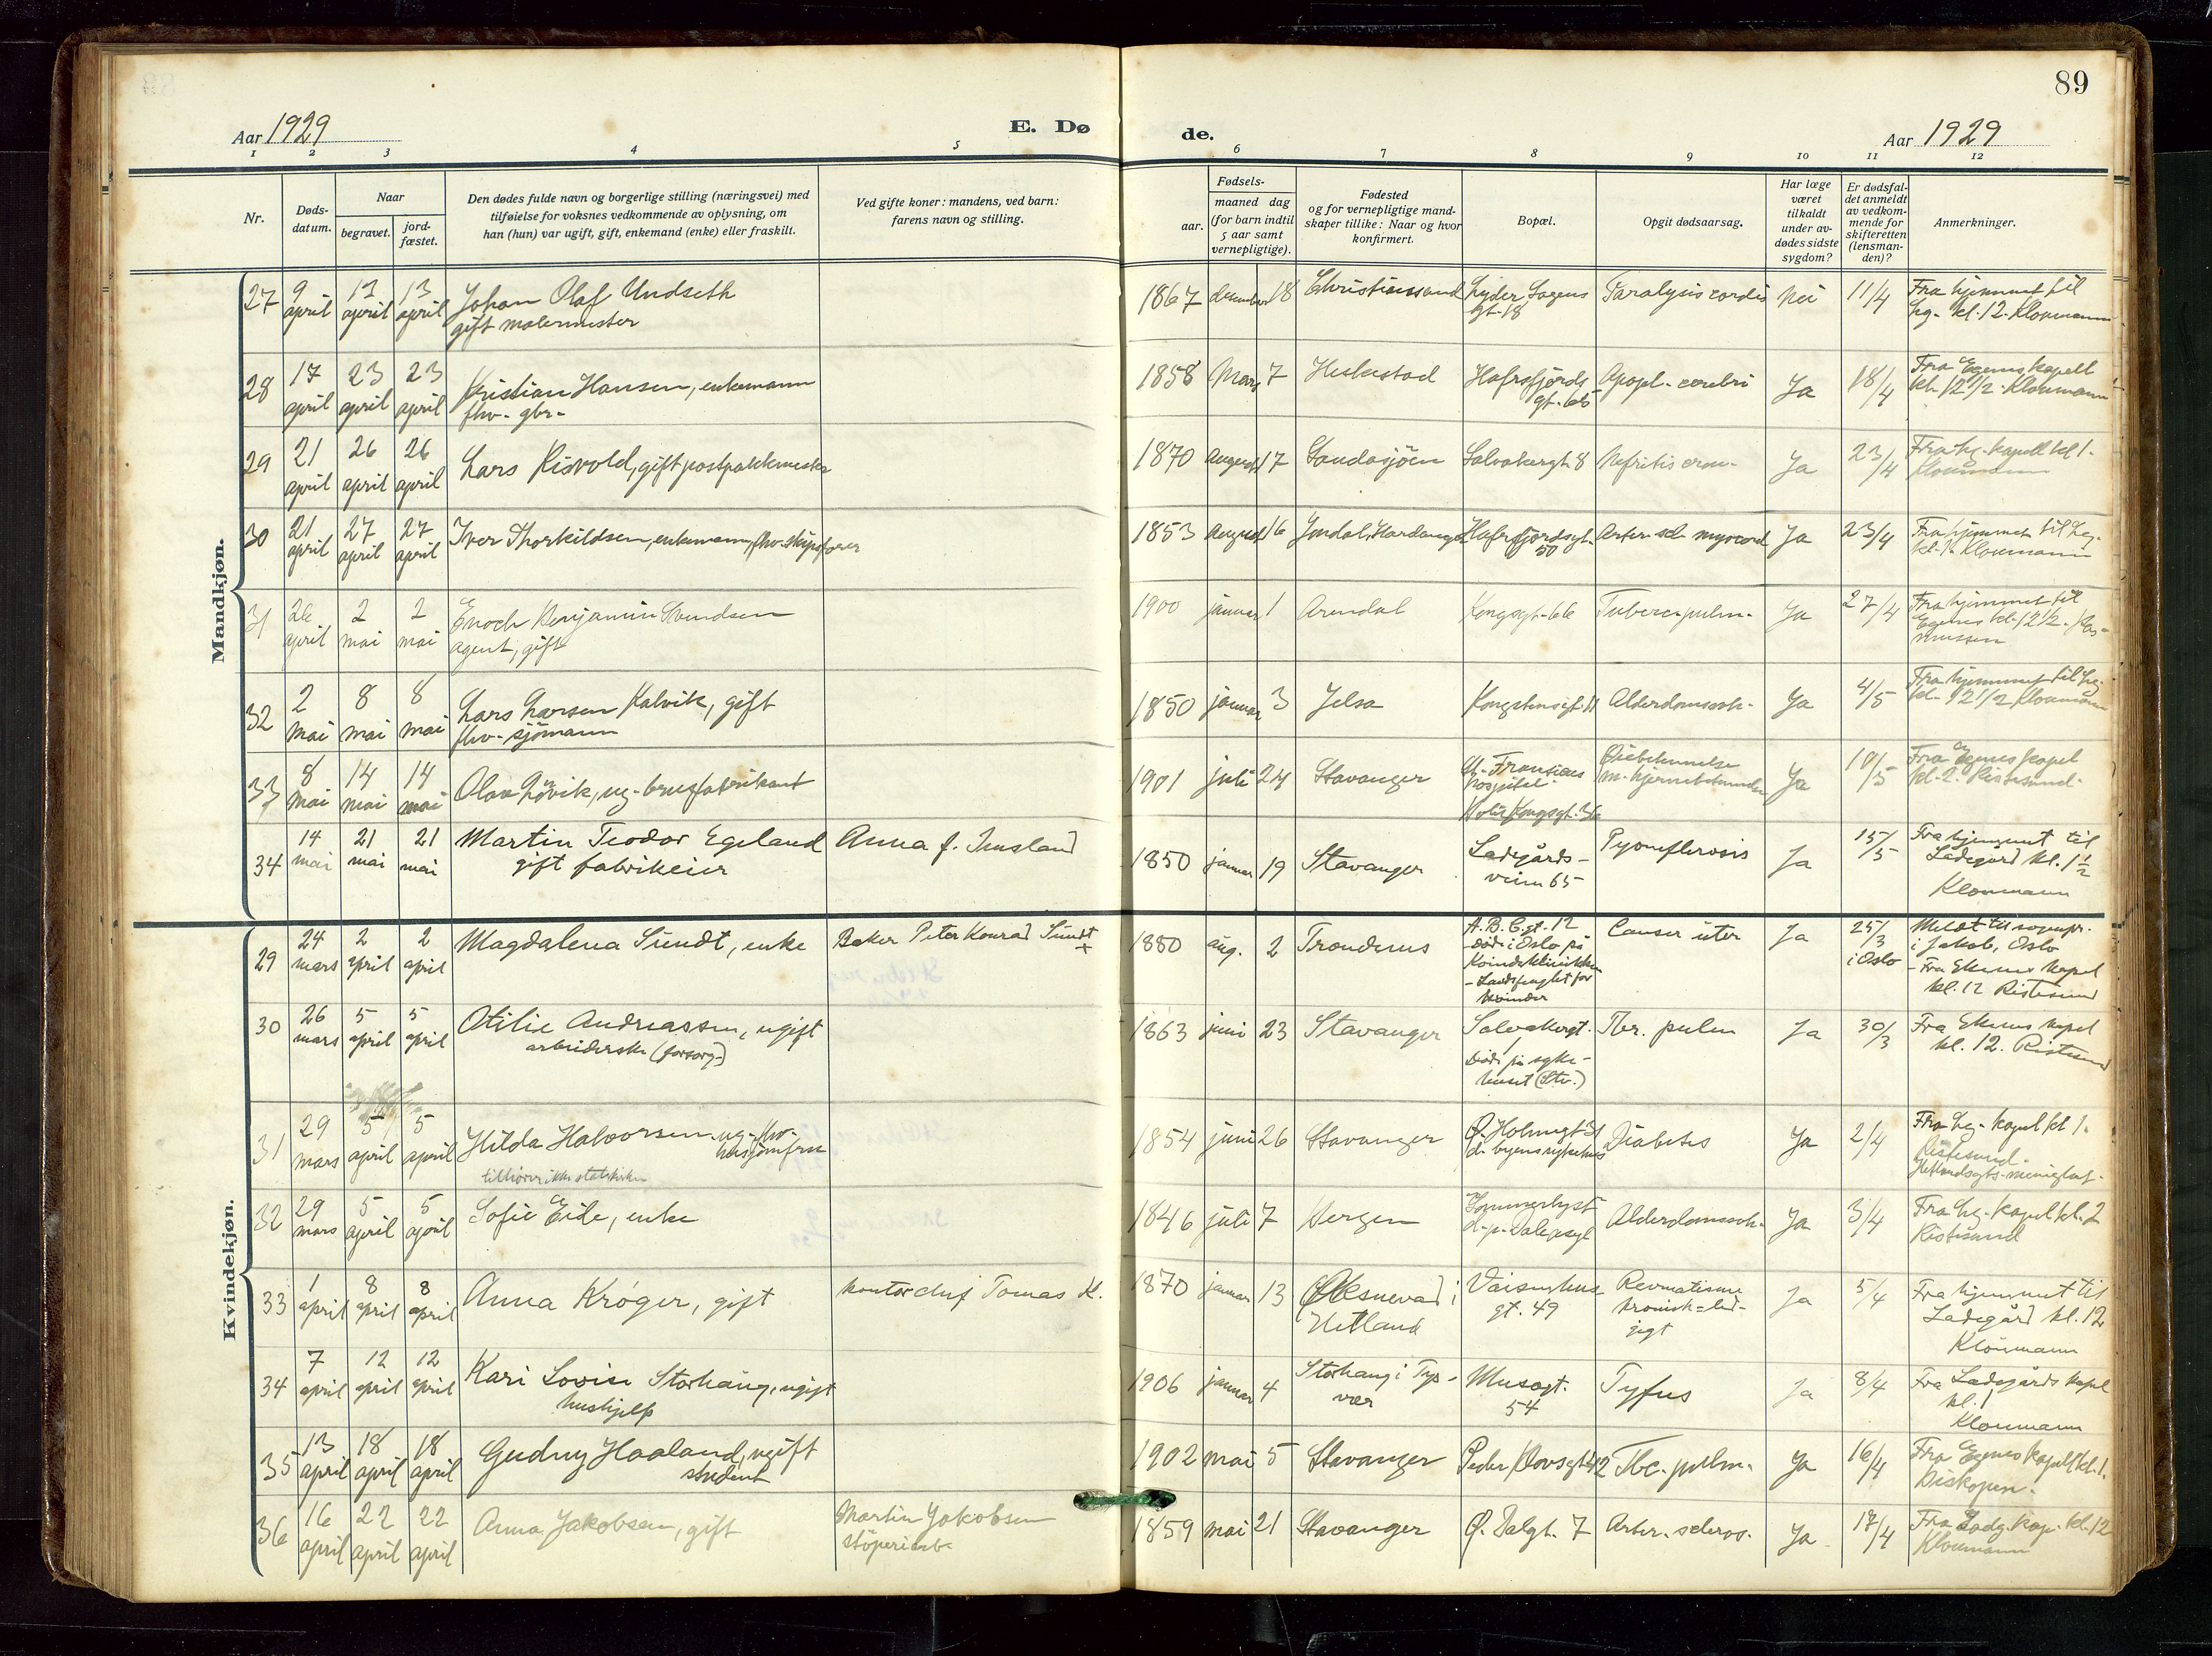 89
Aar 1929
E. Dø
de.
Aar 1929
1 2 3 4 5 6 7 8 9 10 11 12
Nr.
Døds-
datum.
Naar
begravet.
jord-
fæstet.
Den dødes fulde navn og borgerlige stilling (næringsvei) med
tilføielse for voksnes vedkommende av oplysning, om
han (hun) var ugift, gift, enkemand (enke) eller fraskilt.
Ved gifte koner: mandens, ved barn:
farens navn og stilling.
aar.
Fødsels-
maaned dag
(for barn indtil
5 aar samt
vernepligtige).
Fødested
og for vernepligtige mand-
skaper tillike: Naar og hvor
konfirmert.
Bopæl.
Opgit dødsaarsag.
Har læge
været
tilkaldt
under av-
dødes sidste
sygdom?
Er dødsfal-
det anmeldt
av vedkom-
mende for
skifteretten
(lensman-
den)?
Anmerkninger.
Mandkjøn.
27 9 april 13 april 13 april Johan Olaf Undseth
gift malermester
1867 december 18 Christianssand Lyder Sagens
gt. 18 Paralysis cordis Nei 11/4 Fra hjemmet til
Lg. kl. 12. Kloumann
28 17 april 23 april 23 april Kristian Hansen, enkemann
fhv. gbr.
1858 Mars 7 Heskestad Hafrsfjords
gt. 66 Apopl. cerebri Ja 18/4 Fra Egenes kapell
kl. 12 1/2. Kloumann
29 21 april 26 april 26 april Lars Risvold, gift postpakkmester
1870 august 17 Saudasjöen Solvakergt. 8 Nefritis cron. Ja 23/4 Fra Lg. kapell kl 1.
Kloumann
30 21 april 27 april 27 april Iver Thorkildsen, enkemann, fhv. skipsfører
1853 august 16 Jondal, Hardanger Hafrsfjordsgt.
50 Arter. scl. myocard Ja 23/4 Fra hjemmet til Lg.
kl. 1. Kloumann
31 26 april 2 mai 2 mai Enoch Benjamin Svendsen
agent, gift
1900 januar 1 Arendal Kongsgt. 66 Tuberc. pulm. Ja 27/4 Fra hjemmet til
Egenes kl. 12 1/2. Ras-
mussen
32 2 mai 8 mai 8 mai Lars Larsen Kalvik, gift
fhv. sjömann
1850 januar 3 Jelsa Kongstensgt. 11 Alderdomssvk. Ja 4/5 Fra hjemmet til Lg.
kl. 12 1/2 Kloumann
33 8 mai 14 mai 14 mai Olav Lövik, ug. brusfabrikant
1901 juli 24 Stavanger St. Fransiscus
hospital
Kongsgt. 36
m. hjernebetennelse Ja 10/5 Fra Egenes kapel
kl. 2. Ristesund.
34 14 mai 21 mai 21 mai Martin Teodor Egeland
gift fabrikeier Anna f. Imsland
1850 januar 19 Stavanger Ladegårds-
veien 65 Pyonefrosis Ja 15/5 Fra hjemmet til
Ladegård kl. 1 1/2
Kloumann
Kvindekjøn.
29 24 mars 2 april 2 april Magdalena Sundt, enke Baker Peter Konrad Sundt
+
1880 aug. 2 Trondenes A.B.C.gt. 12
død i Oslo på
Kvindeklinikken
- Landsfengslet for
kvinder Cancer uter Ja 25/3 i Oslo Meldt til sognepr.
i Jakob, Oslo
- Fra Ekenes kapel
kl. 12 Ristesund
30 26 mars 5 april 5 april Otilie Andreassen, ugift
arbeiderske (forsorg.)
1863 juni 23 Stavanger Solvakergt.
1
Död på syke-
huset (Stv.) Tbr. pulm Ja 30/3 Fra Ekenes kapel
kl. 12. Ristesund
31 29 mars 5 april 5 april Hilda Halvorsen ug. fhv.
husjomfru
tilhörer ikke statskirken
1854 juni 26 Stavanger Ø. Holmegt 31
d. byens sykehus Diabetes Ja 2/4 Fra Lg. kapel kl 1.
Ristesund.
Hetlandsgts. menighet.
32 29 mars 5 april 5 april Sofie Eide, enke
1846 juli 7 Bergen Sommerlyst
d. p. Dale asyl Alderdomssvk. Ja 3/4 Fra Lg. kapel kl. 2
Ristesund
33 1 april 8 april 8 april Anna Kröger, gift kontorchef Tomas K.
1870 januar 13 Öksnevad i
Hetland Vaisenhus
gt. 49 Revmatisme
kronisk ledd-
gigt Ja 5/4 Fra hjemmet til
Ladegård kl. 12
Kloumann
34 7 april 12 april 12 april Kari Lovise Storhaug, ugift
hushjelp
1906 januar 4 Storhaug i Tys-
vær Musegt.
54 Tyfus Ja 8/4 Fra Ladegårds kapel
kl. 1
Kloumann
35 13 april 18 april 18 april Gudny Haaland, ugift
student
1902 mai 5 Stavanger Peder Klowsgt 42 Tbc. pulm. Ja 16/4 Fra Egenes kapell kl. 1.
Biskopen.
36 16 april 22 april 22 april Anna Jakobsen, gift Martin Jakobsen
stöperiarb.
1859 mai 21 Stavanger Ø. Dalgt. 7 Arter. scleros. Ja 17/4 Fra Ladg. kap. kl. 12
Kloumann